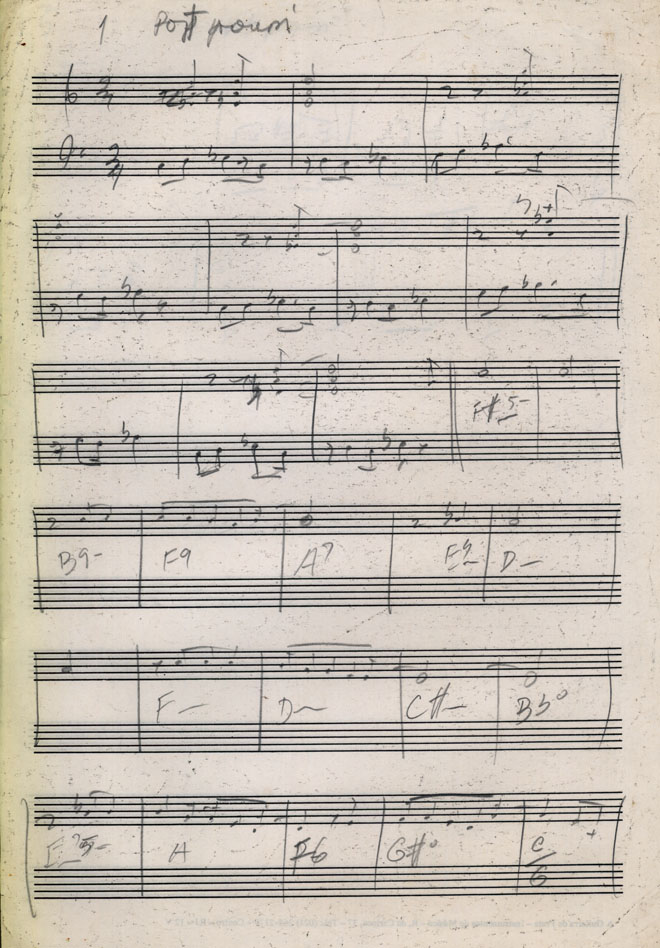 1 Pott pourri
F#5-
B9- F9 A7 E9- D-
F- D- C#- Bb°
A F6 G#° C/G